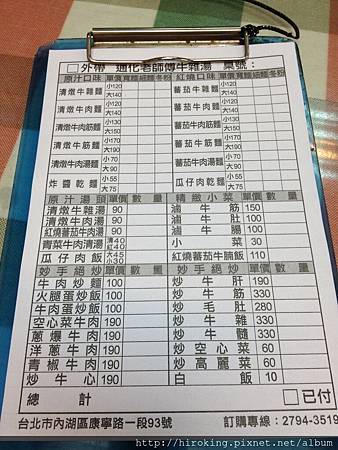 □外帶 通化老師傅牛雜湯 桌號：
原汁口味 單價 寬麵 細麵 冬粉 紅燒口味 單價 寬麵 細麵 冬粉
清燉牛雜麵 小120 大140 蕃茄牛雜麵 小120 大140
清燉牛肉麵 小120 大140 蕃茄牛肉麵 小120 大140
清燉牛肉筋麵 小130 大150 蕃茄牛肉筋麵 小130 大150
清燉牛筋麵 小150 大170 蕃茄牛筋麵 小150 大170
清燉牛肉湯麵 小70 大90 蕃茄牛肉湯麵 小70 大90
炸醬乾麵 小55 大75 瓜仔肉乾麵 小55 大75
原汁湯頭 單價 數量 精緻小菜 單價 數量
清燉牛雜湯 90 滷牛筋 150
清燉牛肉湯 90 滷牛肚 100
紅燒蕃茄牛肉湯 90 滷牛腸 100
青菜牛肉清湯 清40 紅40 小菜 30
瓜仔肉飯 大45 小30 紅燒蕃茄牛腩飯 110
妙手絕炒 單價 數量 妙手絕炒 單價 數量
牛肉炒麵 100 炒牛肝 190
火腿蛋炒飯 100 炒牛筋 330
牛肉蛋炒飯 100 炒毛肚 280
空心菜牛肉 190 炒牛雜 330
蔥爆牛肉 190 炒牛髓 330
洋蔥牛肉 190 炒空心菜 60
青椒牛肉 190 炒高麗菜 60
炒牛心 190 白飯 10
總計 □已付
台北市內湖區康寧路一段93號 訂購專線：2794-3519
http://hiroking.pixnet.net/album